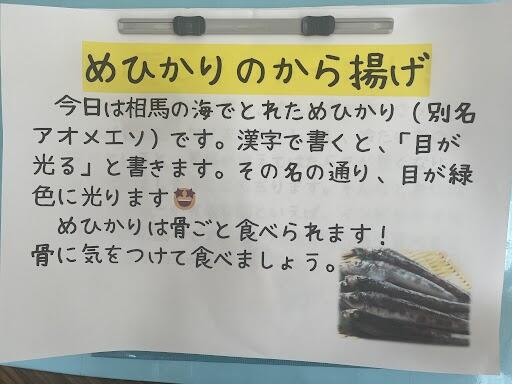 めひかりのから揚げ
今日は相馬の海でとれためひかり（別名
アオメエソ）です。漢字で書くと、「目が
光る」と書きます。その名の通り、目が緑
色に光ります🤩
めひかりは骨ごと食べられます！
骨に気をつけて食べましょう。